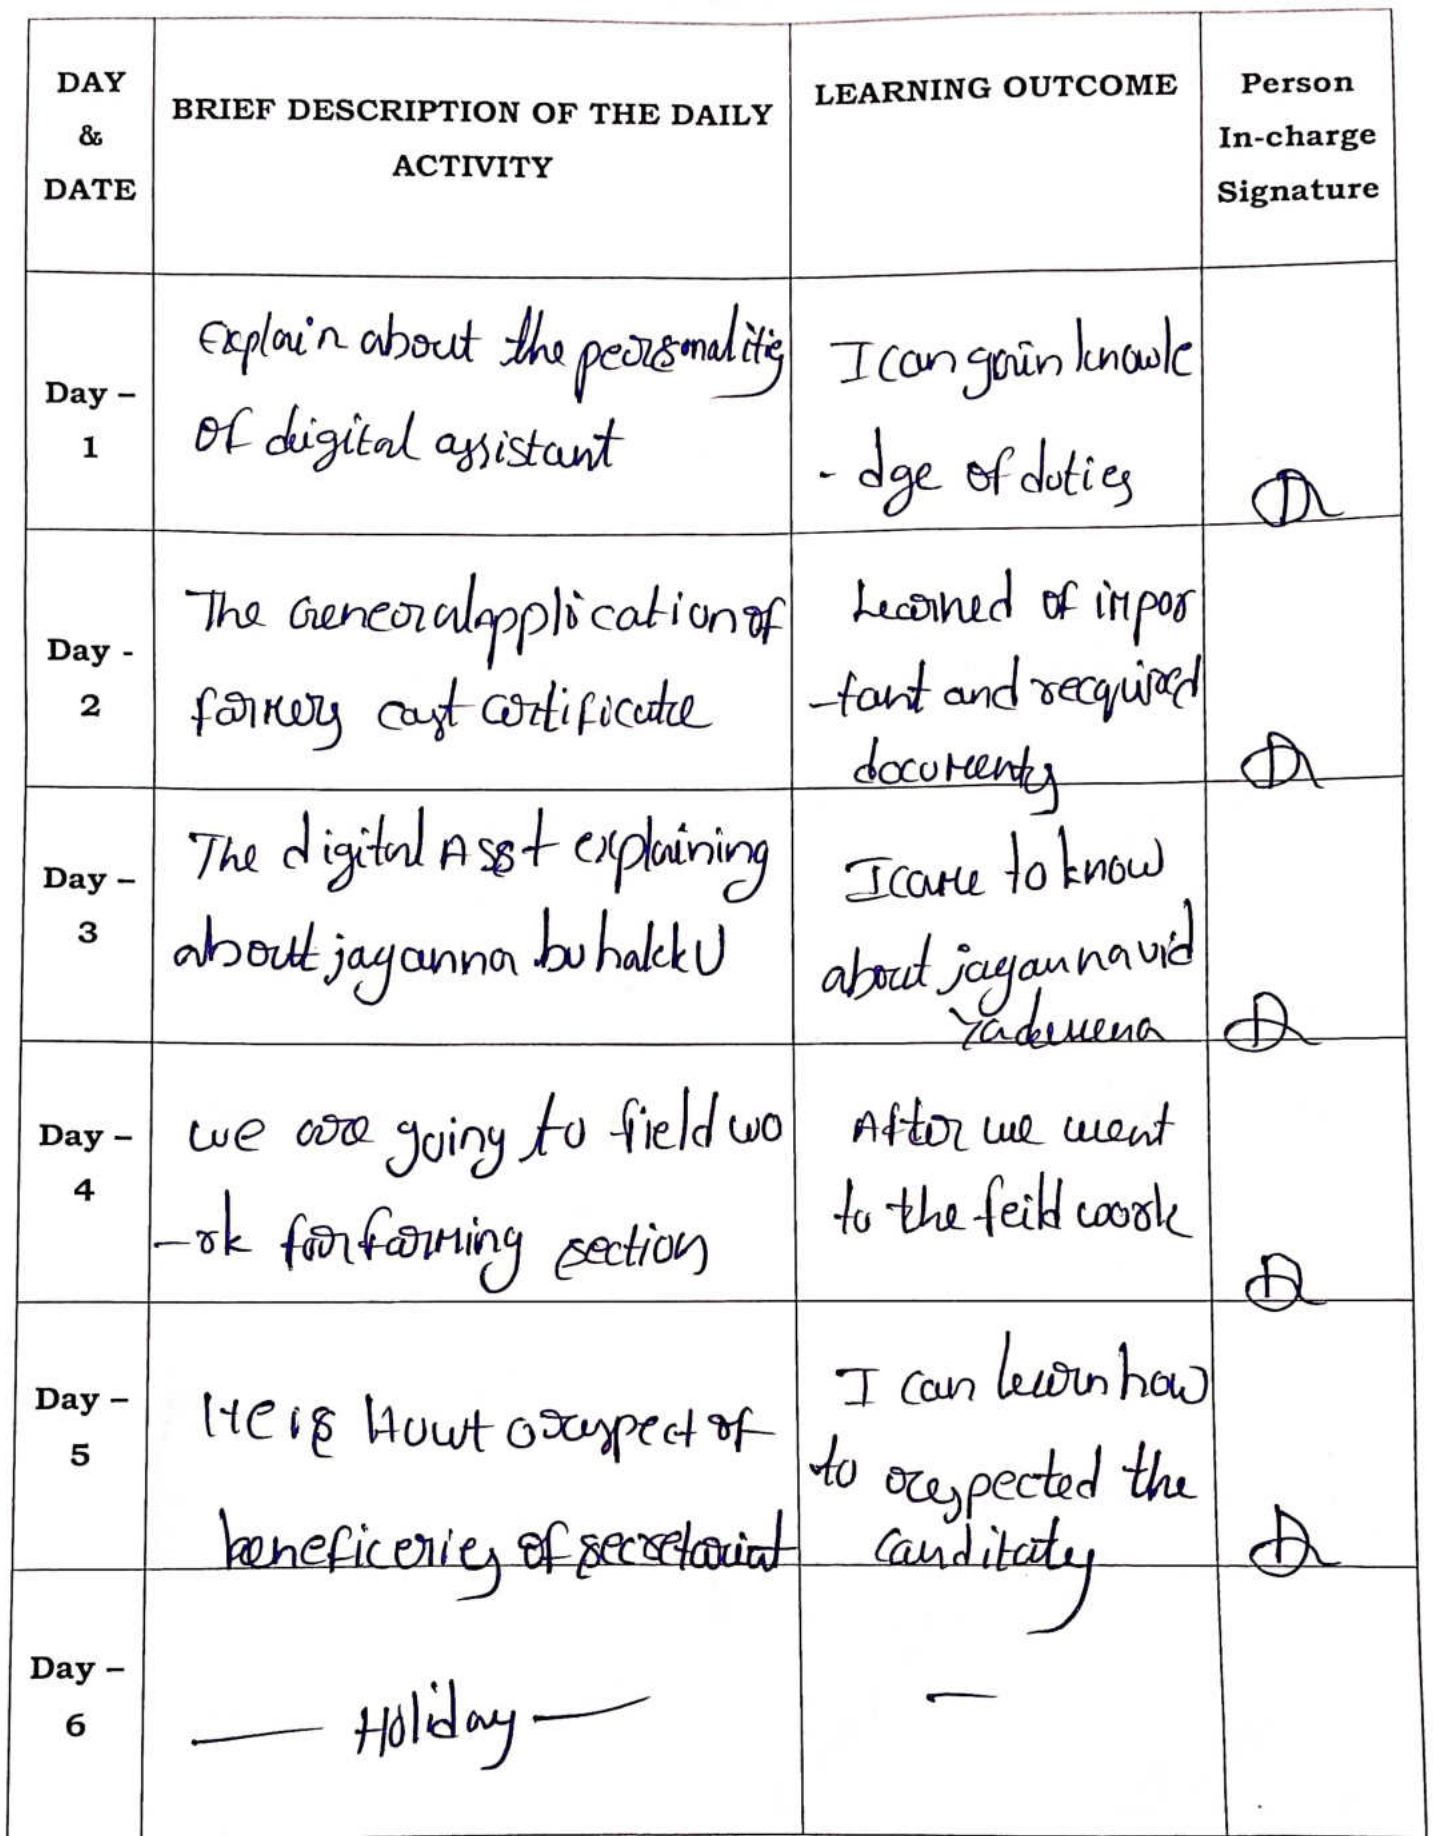 DAY
&
DATE
BRIEF DESCRIPTION OF THE DAILY
ACTIVITY
LEARNING OUTCOME
Person
In-charge
Signature
Day –
1
Explain about the personalities
of digital assistant
I can gain knowle
- dge of duties
Day -
2
The General application of
farmers cast certificate
Learned of impor
-tant and recquired
documents
Day –
3
The digital Asst explaining
about jaganna bu hakku
I came to know
about jagannavid
Day –
4
we are going to field wo
-rk for farming section
After we went
to the feild work
Day –
5
He is respect of
beneficeries of secretariat
I can learn how
to respected the
canditates
Day –
6
— Holiday —
—